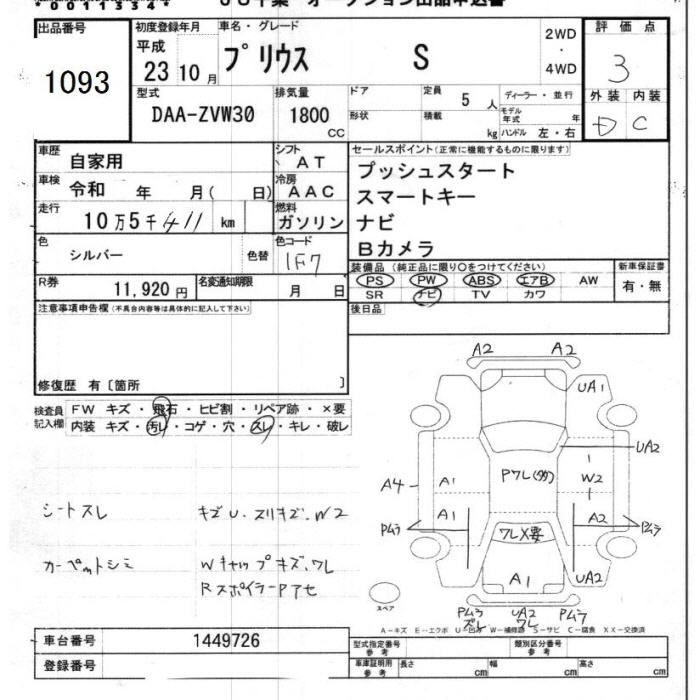 00113344
出品番号
1093
初度登録年月
平成
23 10 月
車名・グレード
プリウス S
2WD
・
4WD
評価点
3
外装 内装
D C
型式
DAA-ZVW30
排気量
1800
CC
ドア
定員
5 人
形状
積載
kg
ディーラー・並行
モデル年式 年
ハンドル 左・右
車歴
自家用
シフト
AT
車検
令和 年 月( 日)
冷房
AAC
走行
10万5千411 km
燃料
ガソリン
色
シルバー
色替
色コード
1F7
R券
11,920円
名変通知期限
月 日
セールスポイント(正常に機能するものに限ります)
プッシュスタート
スマートキー
ナビ
Bカメラ
装備品(純正品に限り○をつけてください)
PS PW ABS エアB AW
SR ナビ TV カワ
新車保証書
有・無
後日品
注意事項申告欄(不具合内容等は具体的に記入して下さい)
修復歴 有〔箇所 〕
検査員記入欄
FW キズ・飛石・ヒビ割・リペア跡・×要
内装 キズ・汚レ・コゲ・穴・スレ・キレ・破レ
シートスレ
カーペットシミ
キズU.スリキズ.W2
Wキャップキズワレ
RスポイラーPアセ
A2 A2
UA1
UA2
W2
A4
A1
A1
A2
Pムラ
Pムラ
Pワレ
ワレX要
A1
UA2
Pムラ
ズレ
UA2
ワレ
Pムラ
スペア
A-キズ E-エクボ U-凹み W-補修跡 S-サビ C-腐食 XX-交換済
車台番号
1449726
登録番号
型式指定番号
参考
類別区分番号
参考
車庫証明用
参考
長さ cm
幅 cm
高さ cm